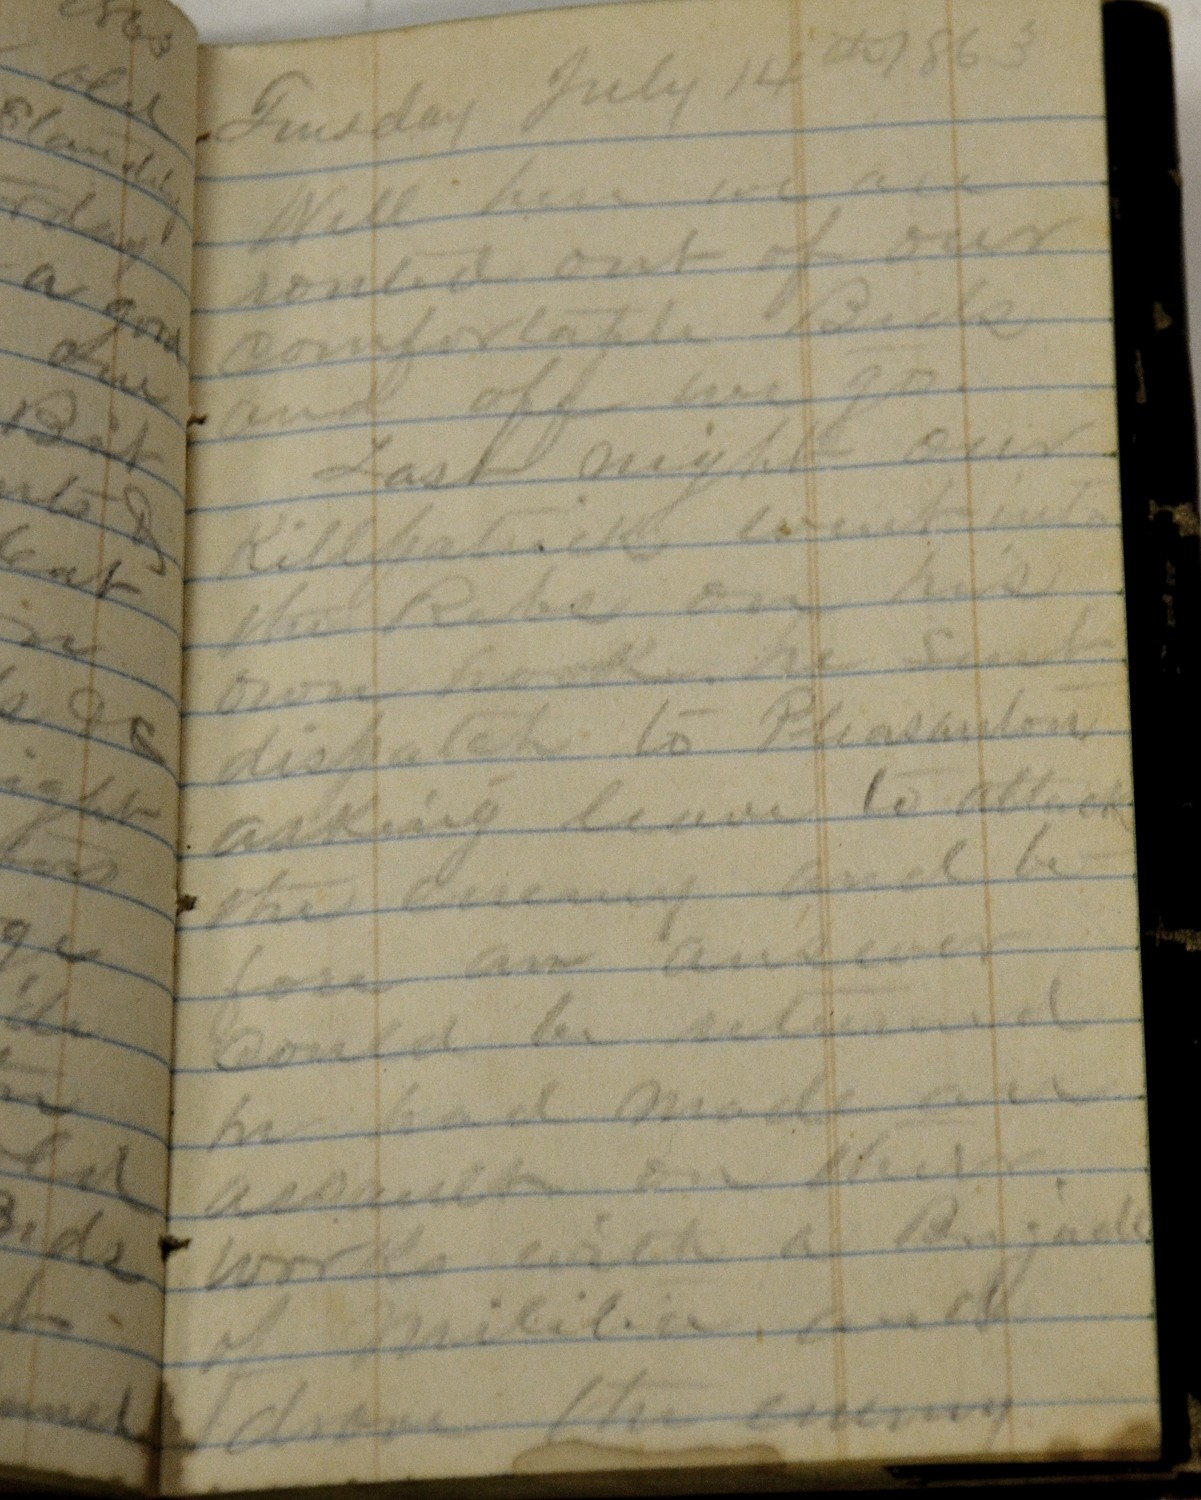 1863
old
a good
one
Bit
&
in
ds & c
old
Beds
Tuesday July 14th 1863
Well here we are
routed out of our
comfortable Beds
and off we go
Last night our
Killpatrick went into
the Rebs on his
own hook. he sent
dispatch to Pleasanton
asking leave to attack
the enemy and be
fore an answer
could be returned
he had made an
assault on their
works with a Brigade
of Militia and
drove the enemy